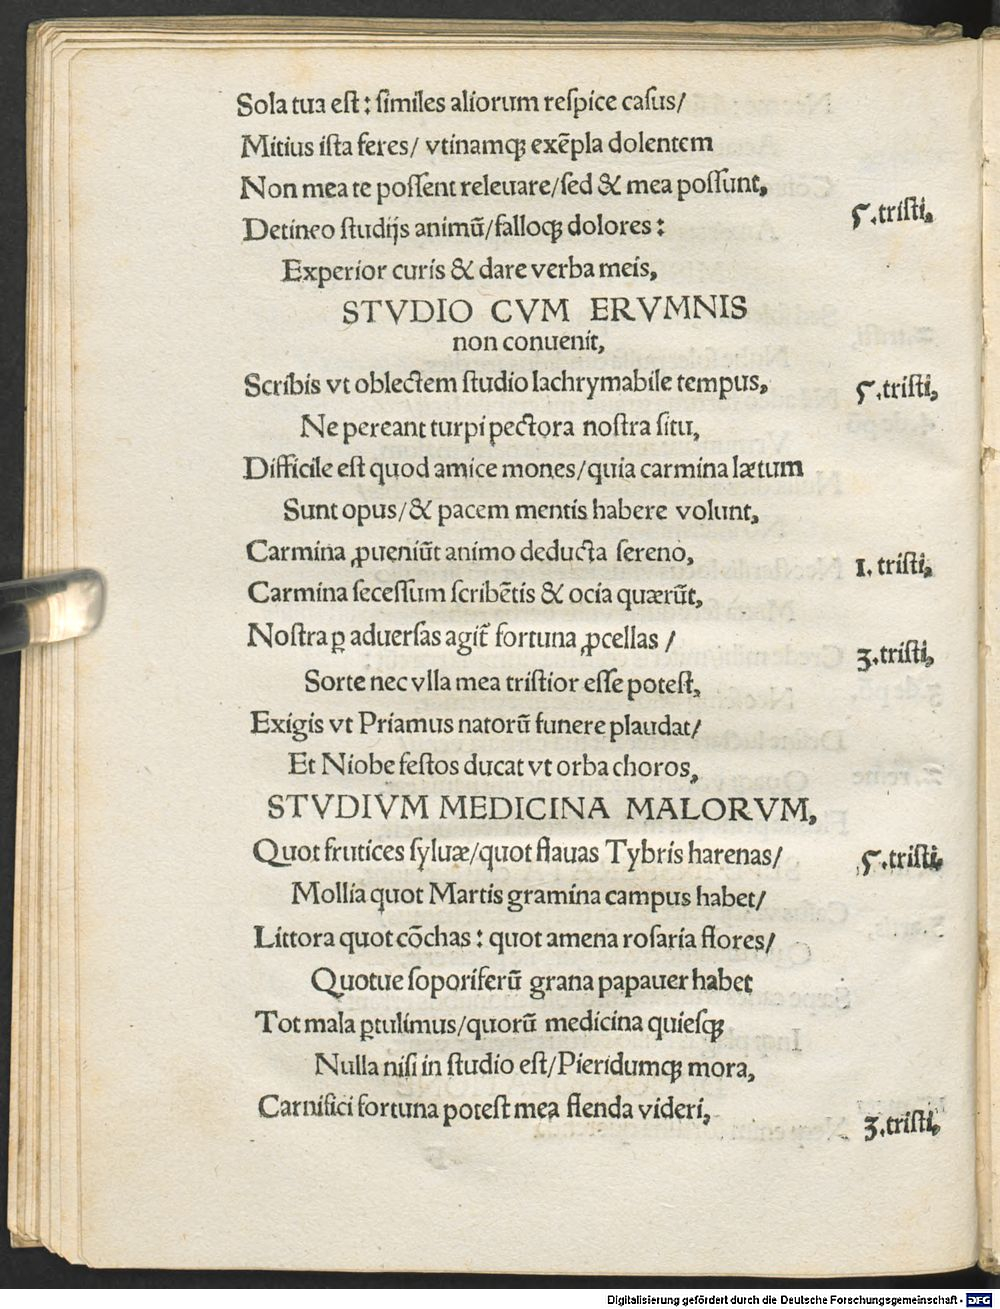 Sola tua eſt: ſimiles aliorum reſpice caſus/
Mitius iſta feres/ vtinamqꝫ exẽpla dolentem
Non mea te poſſent releuare/ſed & mea poſſunt,
Detineo ſtudijs animũ/falloqꝫ dolores: 5.triſti,
Experior curis & dare verba meis,
STVDIO CVM ERVMNIS
non conuenit,
Scribis vt oblectem ſtudio lachrymabile tempus, 5.triſti,
Ne pereant turpi pectora noſtra ſitu,
Difficile eſt quod amice mones/quia carmina lætum
Sunt opus/& pacem mentis habere volunt,
Carmina ꝓueniũt animo deducta ſereno, 1. triſti,
Carmina ſeceſſum ſcribẽtis & ocia quærũt,
Noſtra ꝑ aduerſas agit̃ fortuna ꝓcellas / 3.triſti,
Sorte nec vlla mea triſtior eſſe poteſt,
Exigis vt Priamus natorũ funere plaudat/
Et Niobe feſtos ducat vt orba choros,
STVDIVM MEDICINA MALORVM,
Quot frutices ſyluæ/quot flauas Tybris harenas/ 5.triſti,
Mollia quot Martis gramina campus habet/
Littora quot cõchas: quot amena roſaria flores/
Quotue ſoporiferũ grana papauer habet
Tot mala ꝑtulimus/quorũ medicina quieſqꝫ
Nulla niſi in ſtudio eſt/Pieridumqꝫ mora,
Carnifici fortuna poteſt mea flenda videri, 3.triſti,
Digitalisierung gefördert durch die Deutsche Forschungsgemeinschaft - DFG